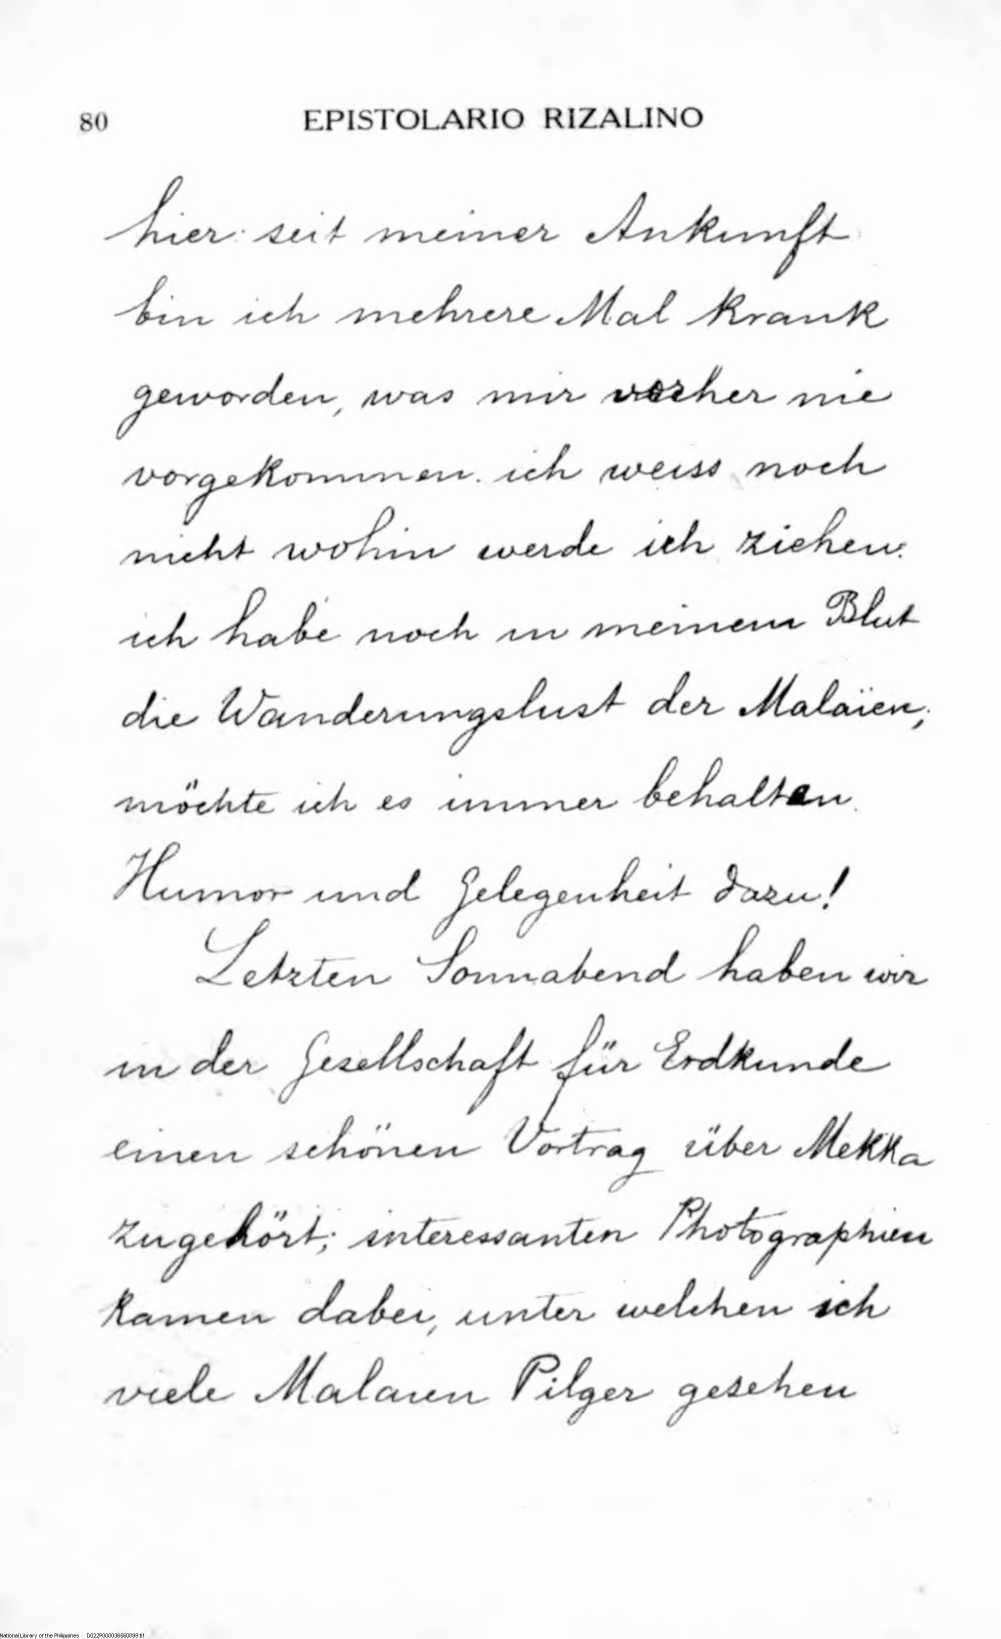 80 EPISTOLARIO RIZALINO
hier: seit meiner Ankunft
bin ich mehrere Mal krank
geworden, was mir vorher nie
vorgekommen. ich weiss noch
nicht wohin werde ich ziehen.
ich habe noch in meinem Blut
die Wanderungslust der Malaïen;
möchte ich es immer behalten.
Humor und Gelegenheit dazu!
Letzten Sonnabend haben wir
in der Gesellschaft für Erdkunde
einen schönen Vortrag über Mekka
zugehört; interessanten Photographien
kamen dabei, unter welchen ich
viele Malaien Pilger gesehen
National Library of the Philippines